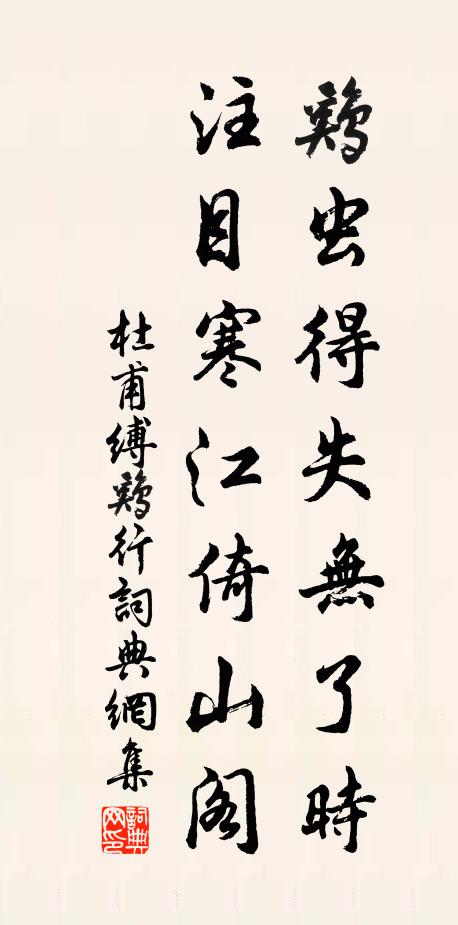 鷄虫得失無了時
注目寒江倚山閣
杜甫縛鷄行詞典網集
詞典
网印